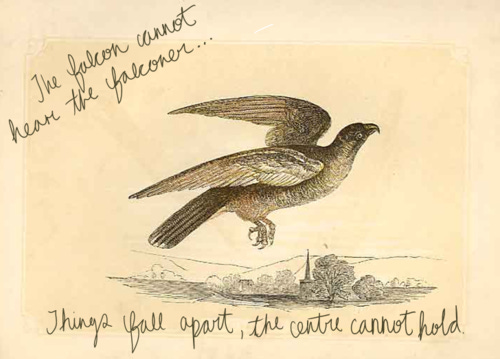 The falcon cannot
hear the falconer...
Things fall apart, the centre cannot hold.